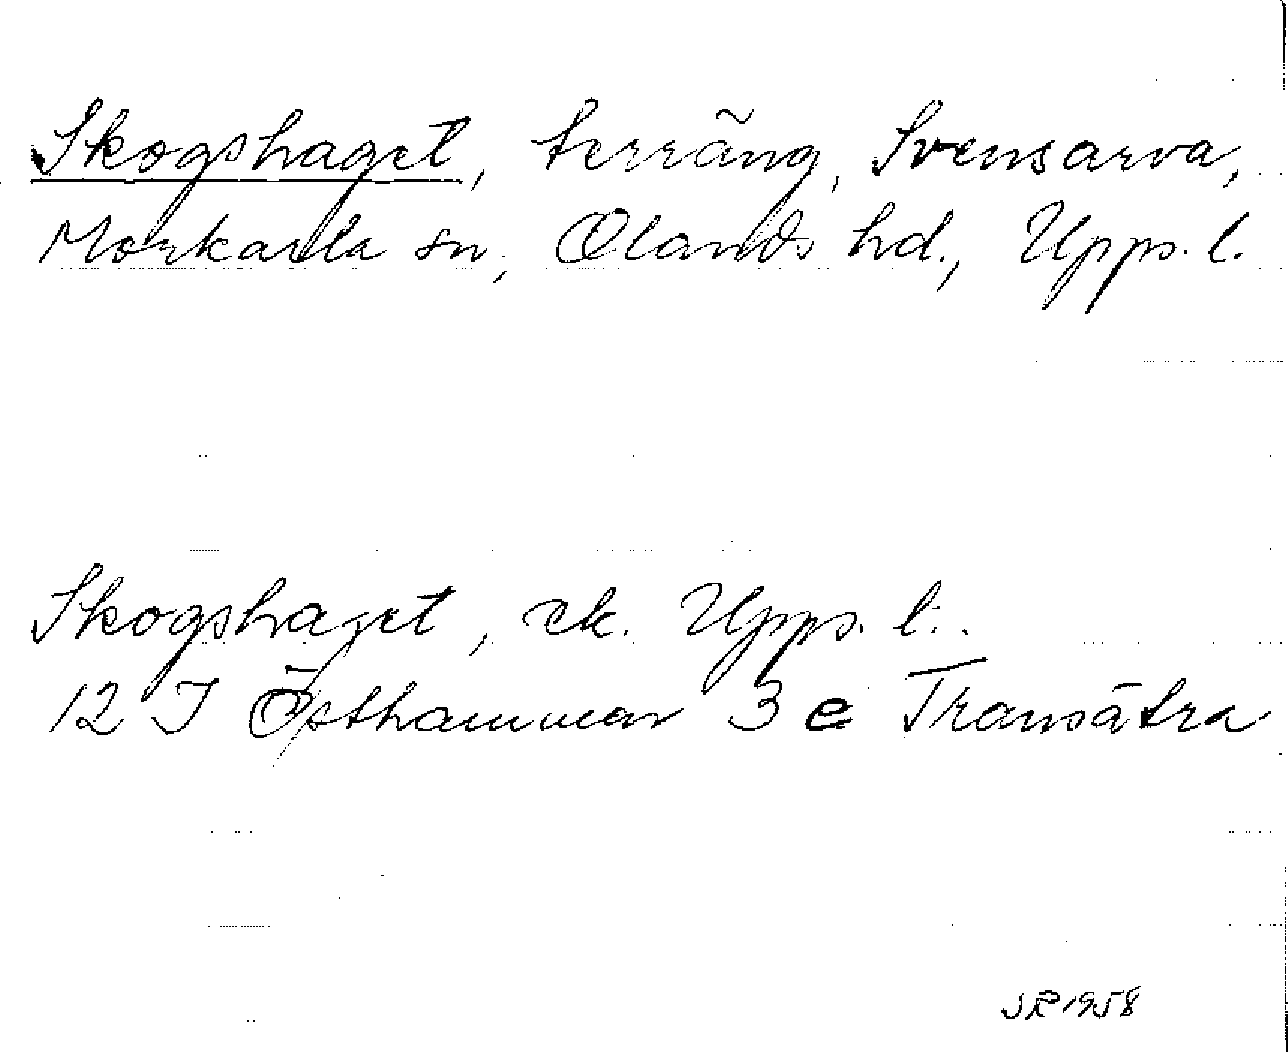 Skogshaget, terräng, Svensarva,
Morkarla sn, Olands hd., Upps. l.
Skogshaget, ek. Upps. l.
12 I Östhammar 3 e Transätra
JR 1958